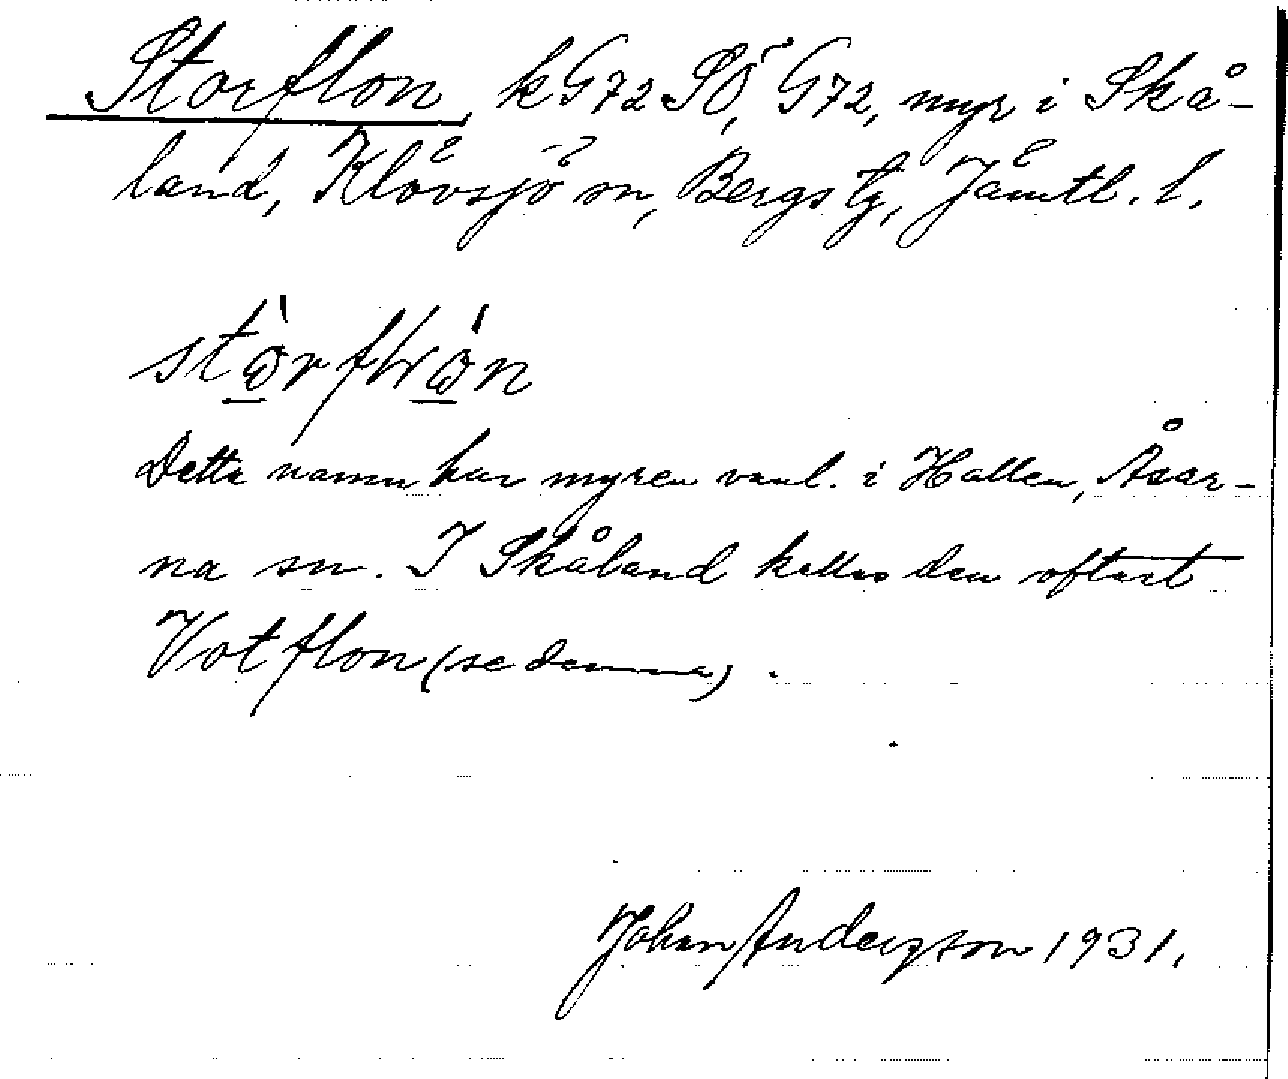 Storflon, kG72SÖ, G72, myr i Skå-
land, Klövsjö sn, Bergs tg, Jämtl. l.
Detta namn har myren vanl. i Hallen, Åsar-
na sn. I Skåland kallas den oftast
Votflon (se denna).
Johan Anderzson 1931.